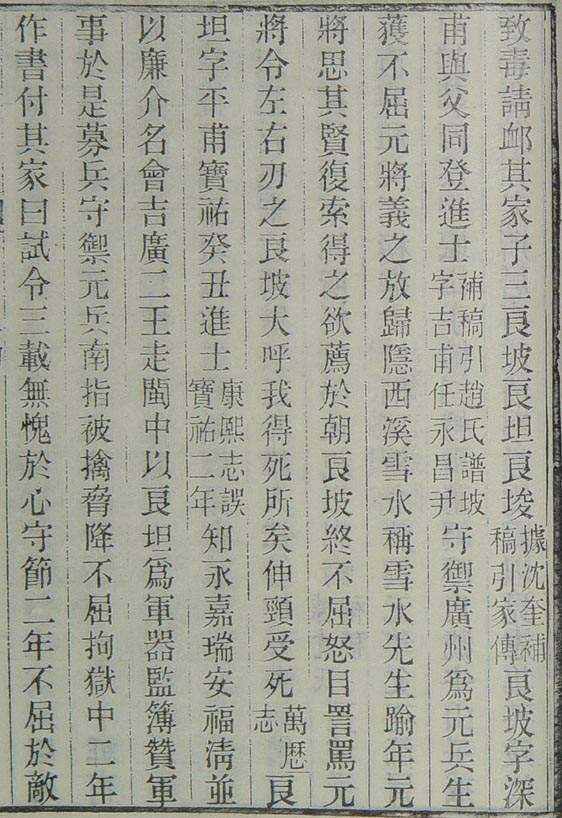 致毒請卹其家子三良坡良坦良埈據沈奎補稿引家傳良坡字深
甫與父同登進士補稿引趙氏譜坡字吉甫任永昌尹守禦廣州爲元兵生
獲不屈元將義之放歸隱西溪雪水稱雪水先生踰年元
將思其賢復索得之欲薦於朝良坡終不屈怒目詈罵元
將令左右刃之良坡大呼我得死所矣伸頸受死萬歷志良
坦字平甫寶祐癸丑進士康熙志誤寶祐二年知永嘉瑞安福清並
以廉介名會吉廣二王走閩中以良坦爲軍器監簿贊軍
事於是募兵守禦元兵南指被擒脅降不屈拘獄中二年
作書付其家曰試令三載無愧於心守節二年不屈於敵